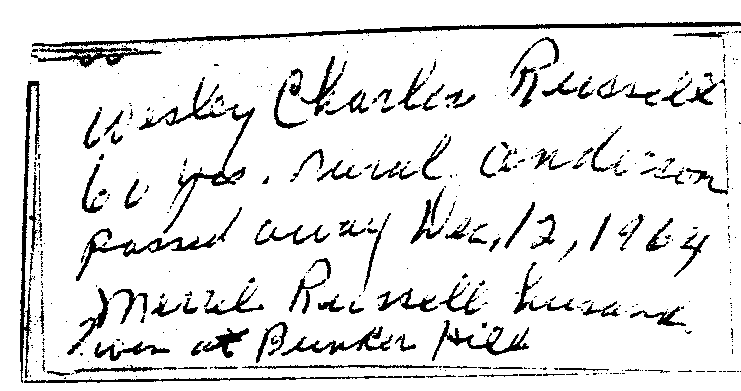 Wesley Charles Russell
60 yrs. rural Anderson
passed away Dec, 12, 1964
Merril Russell husand
at Bunker Hill